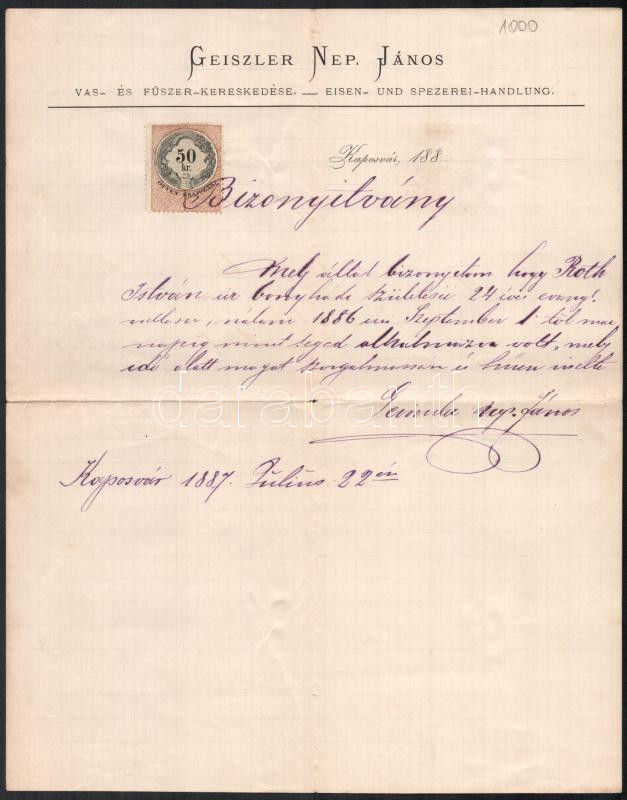 1000
GEISZLER NEP. JÁNOS
VAS- ÉS FŰSZER-KERESKEDÉSE. — EISEN- UND SPEZEREI-HANDLUNG.
50
kr.
ÖTVEN KRAJCZÁR
Kaposvár, 188
Bizonyitvány
Mely által bizonyitom hogy Roth
István úr bonyhádi születésü 24 éves evang.
nálam 1886 Szeptember 1 től mai
napig mint segéd alkalmazva volt, mely
idő alatt magát szorgalmassan és hiven viselte
Nep. János
Kaposvár 1887. Július 22én
darabanth